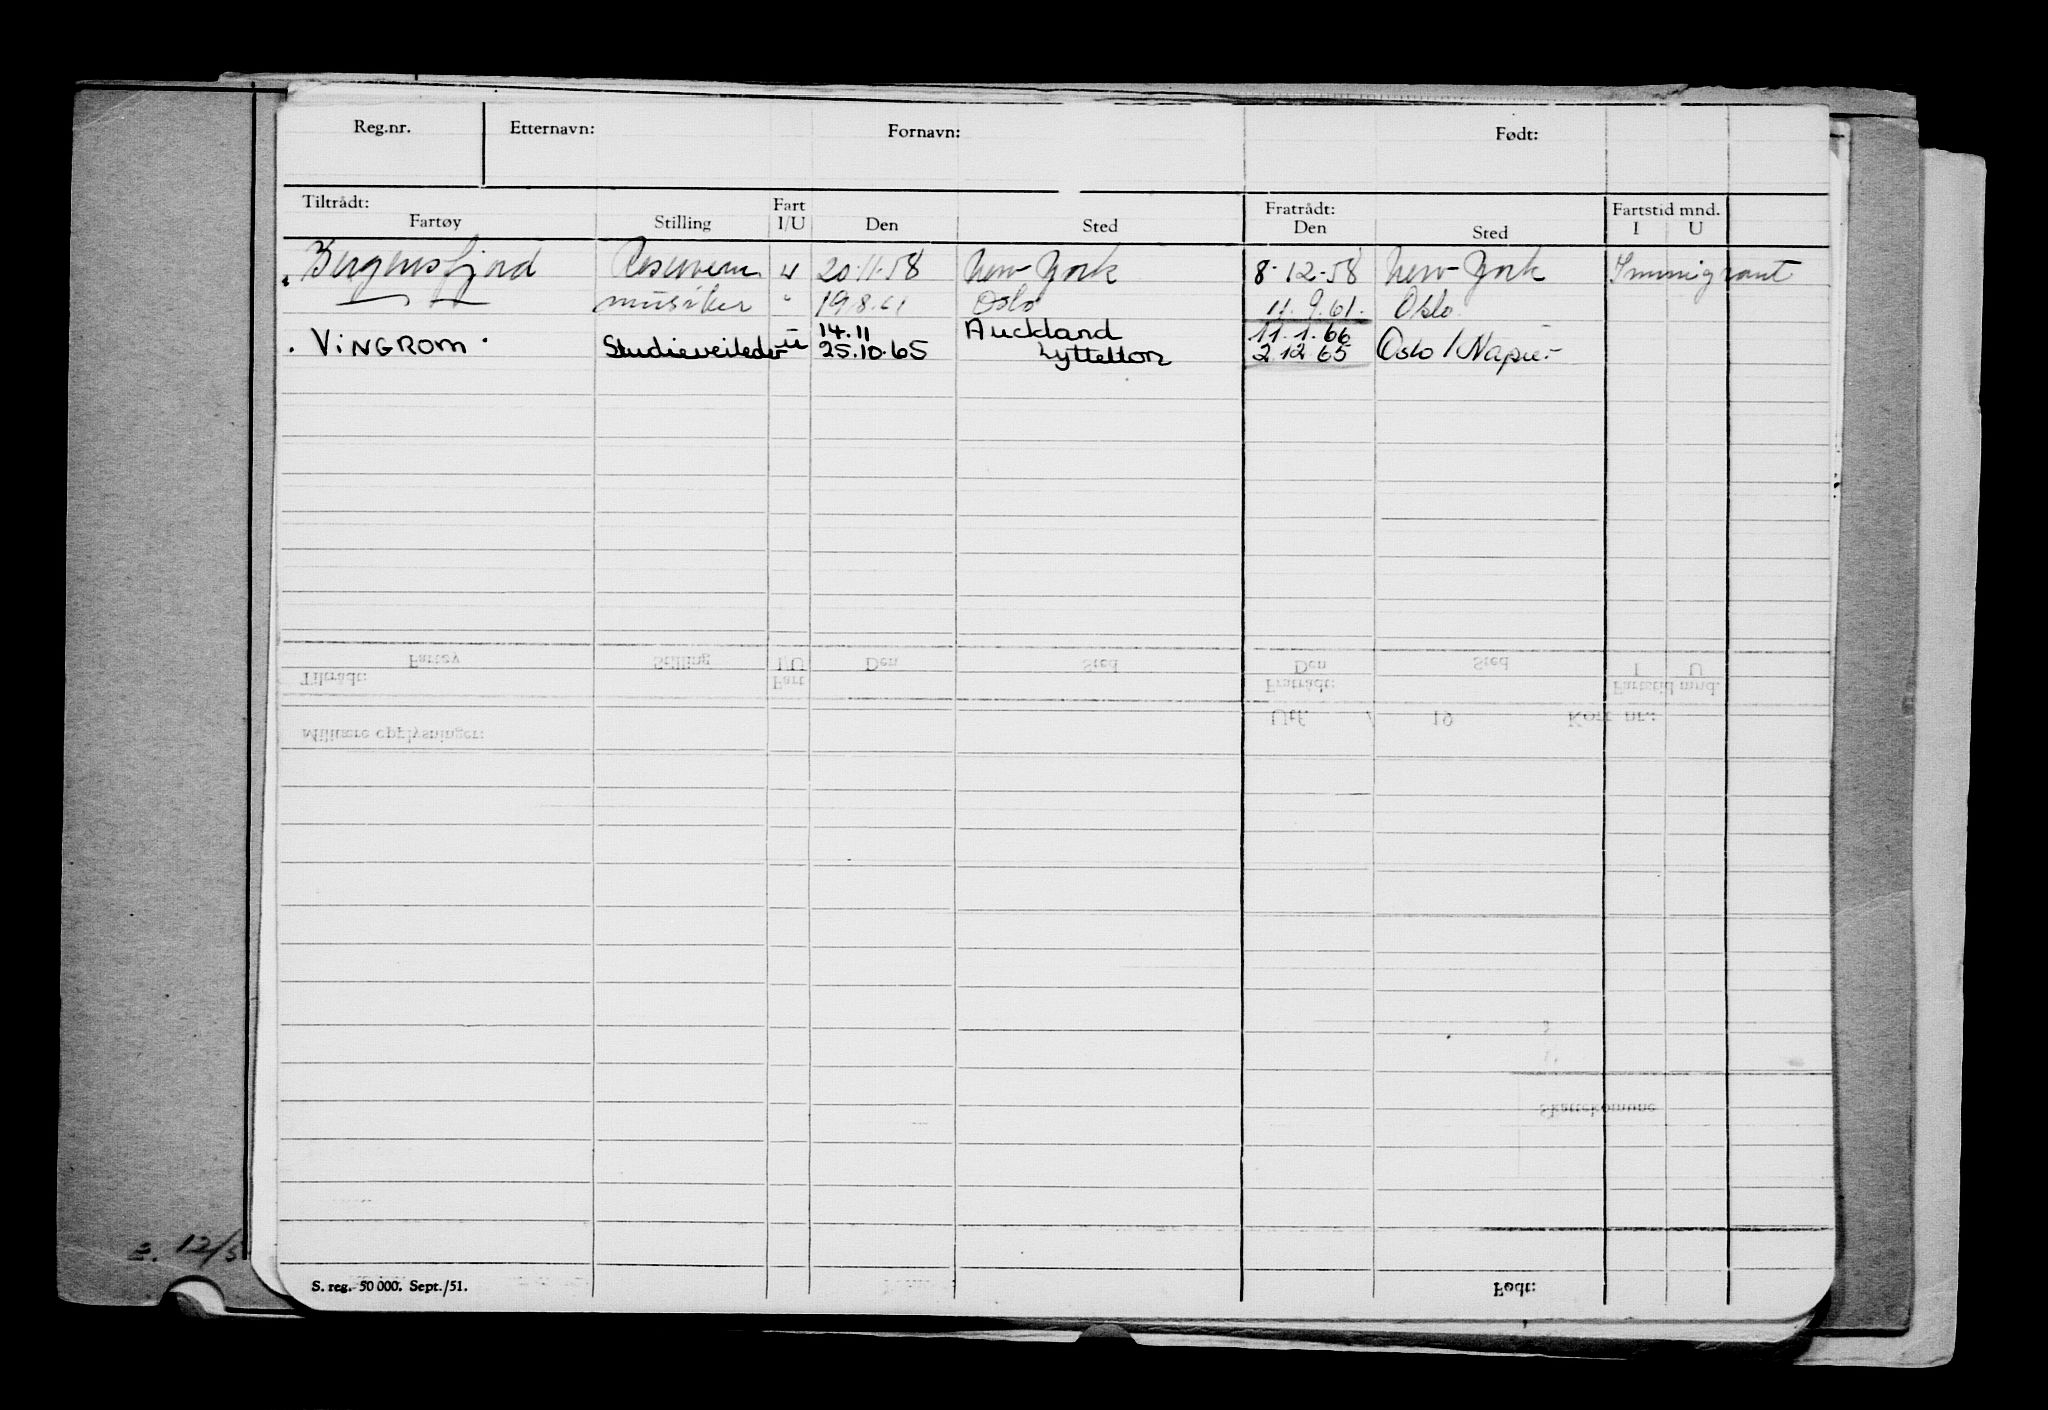 Reg.nr. Etternavn: Fornavn: Født:
Tiltrådt: Fart Fratrådt: Fartstid mnd.
Fartøy Stilling I/U Den Sted Den Sted I U
Bergensfjord u 20.11.58 New York 8-12-58 New York Immigrant
musiker " 19.8.61 Oslo 11.9.61. Oslo
14.11 Auckland 11.1.66
. VINGROM . Studieveileder u 25.10.65 Lyttelton 2.12 65 Oslo / Napier
Fartøy Stilling I/U Den Sted Den Sted I U
Tiltrådt: Fart Fratrådt: Fartstid mnd.
Utf. / 19 Kort nr.:
Militære opplysninger:
Skattekomune
12/5
S. reg. 50 000. Sept./51. Født: